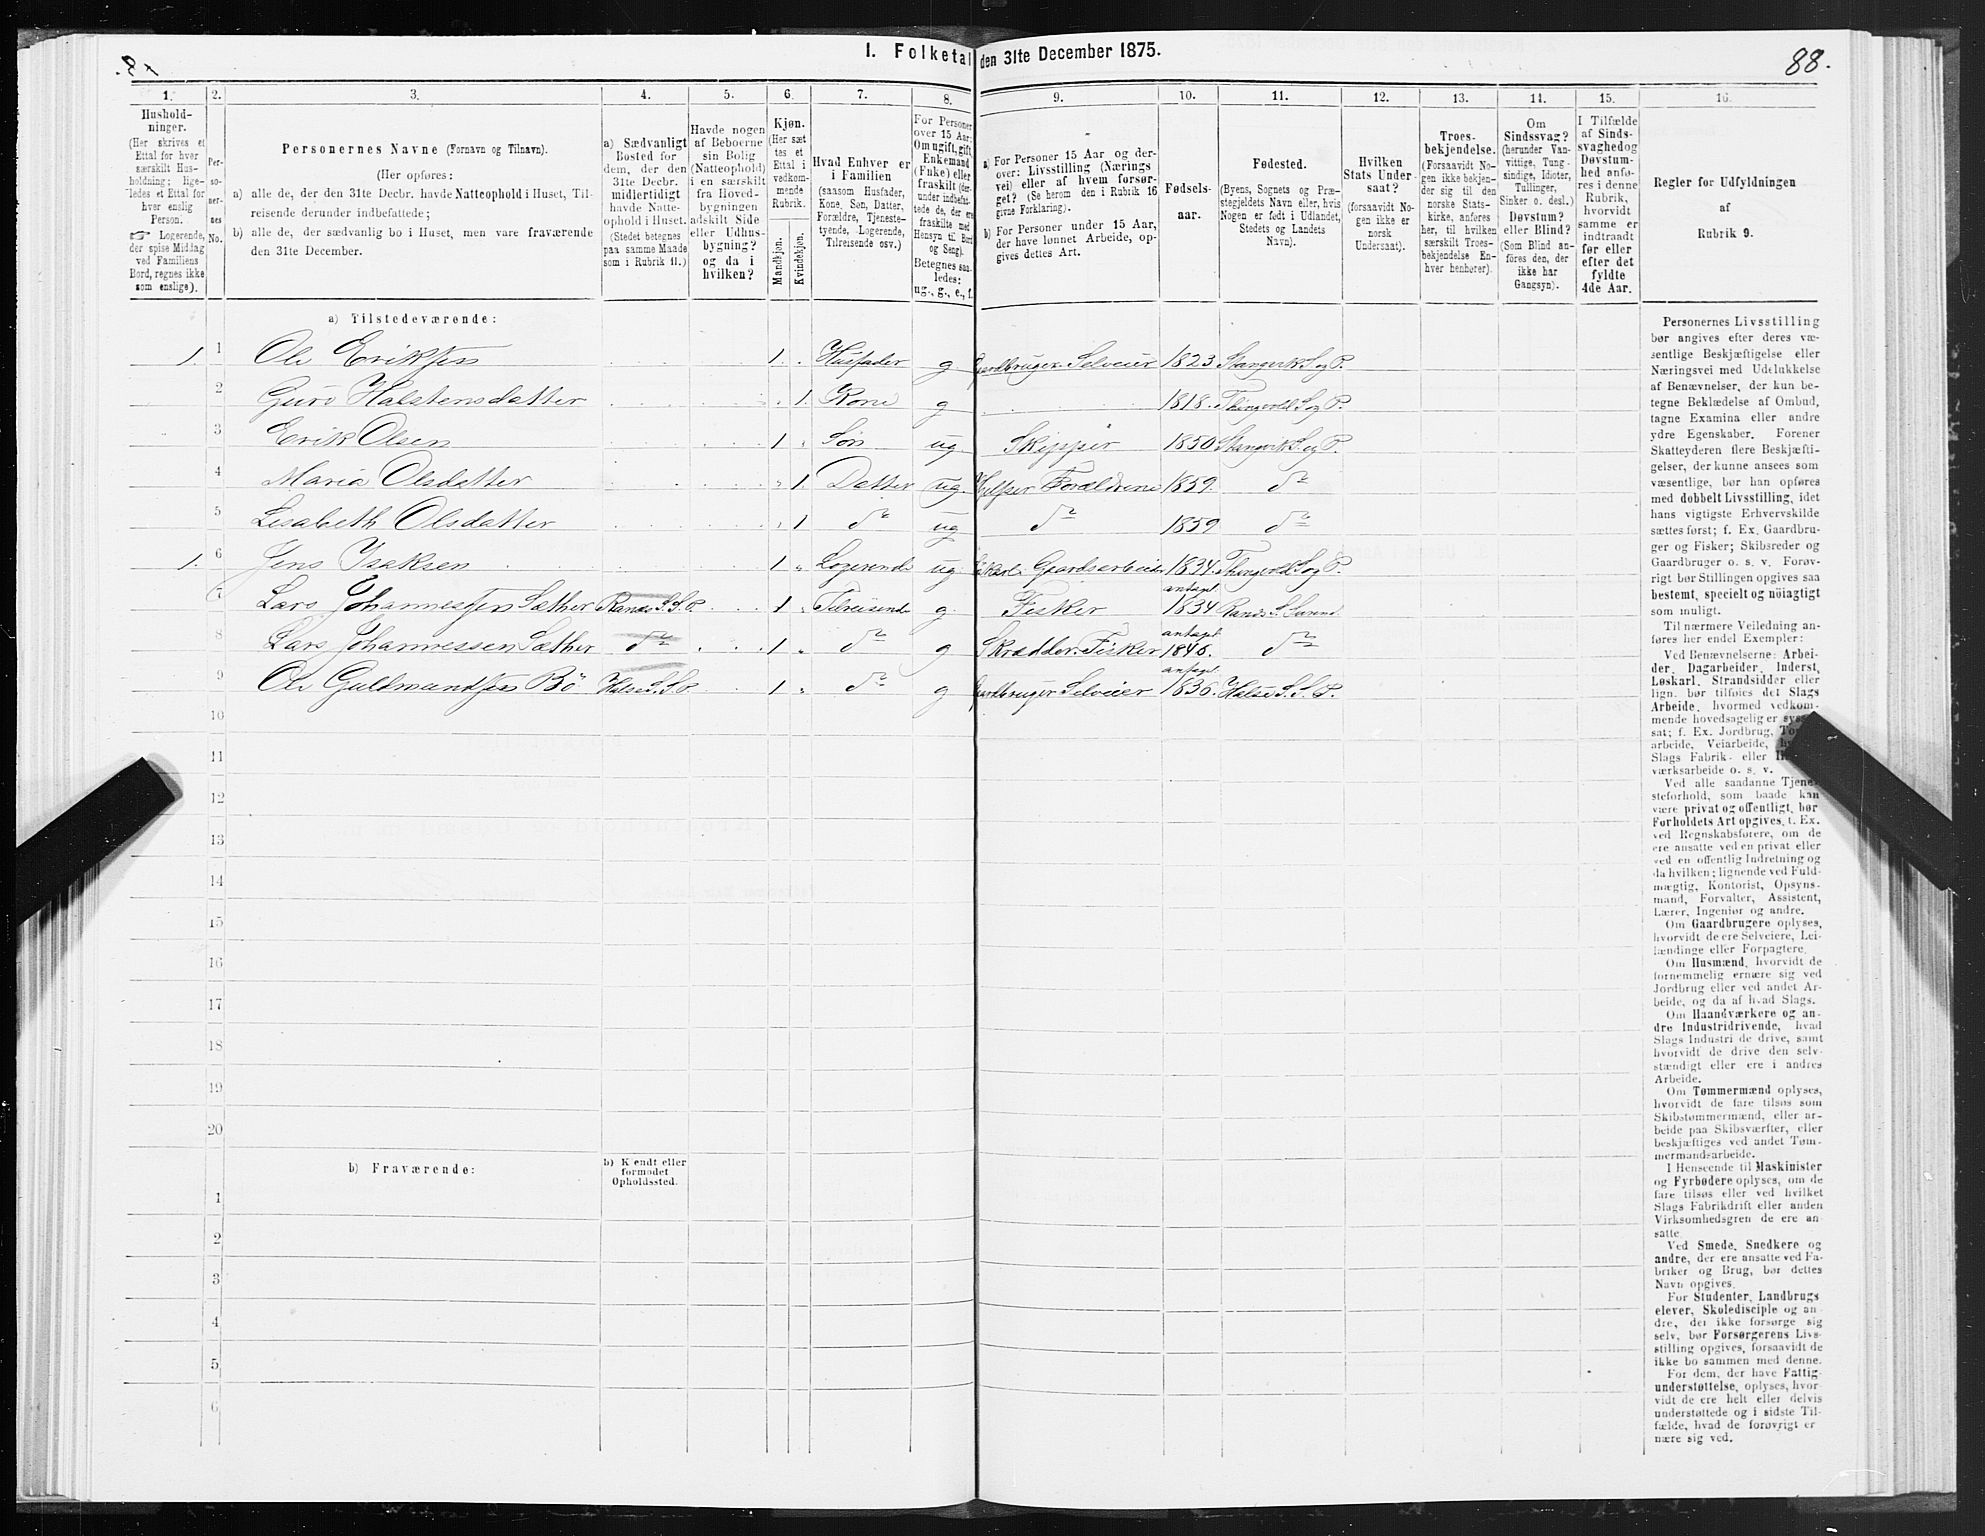 I. Folketal den 31te December 1875.
88.
1.
2.
3.
4.
5.
6.
7.
8.
9.
10.
11.
12.
13.
14.
15.
16.
Hushold-
ninger.
(Her skrives et
Ettal for hver
særskilt Hus-
holdning; lige-
ledes et Ettal for
hver enslig
Person.
☞ Logerende,
der spise Middag
ved Familiens
Bord, regnes ikke
som enslige).
Per-
so-
ner-
nes
No.
Personernes Navne (Fornavn og Tilnavn).
(Her opføres:
a) alle de, der den 31te Decbr. havde Natteophold i Huset, Til-
reisende derunder indbefattede;
b) alle de, der sædvanlig bo i Huset, men vare fraværende
den 31te December.
a) Sædvanligt
Bosted for
dem, der den
31te Decbr.
midlertidigt
havde Natte-
ophold i Huset.
(Stedet betegnes
paa samme Maade
som i Rubrik 11.)
Havde nogen
af Beboerne
sin Bolig
(Natteophold)
i en særskilt
fra Hoved-
bygningen
adskilt Side
eller Udhus-
bygning?
og da i
hvilken?
Kjøn.
(Her sæt
tes et
Ettal i
vedkom-
mende
Rubrik.
Mandkjøn.
Kvindekjøn.
Hvad Enhver er
i Familien
(saasom Husfader,
Kone, Søn, Datter,
Forældre, Tjeneste-
tyende, Logerende,
Tilreisende osv.)
For Personer
over 15 Aar:
Om ugift, gift,
Enkemand
(Enke) eller
fraskilt (der-
under indbefat-
tede de, der ere
fraskilte med
Hensyn til Bord
og Seng).
Betegnes saa-
ledes:
ug., g., e., f.
a) For Personer 15 Aar og der-
over: Livsstilling (Nærings
vei) eller af hvem forsør-
get? (Se herom den i Rubrik 16
givne Forklaring).
b) For Personer under 15 Aar,
der have lønnet Arbeide, op-
gives dettes Art.
Fødsels-
aar.
Fødested.
(Byens, Sognets og Præ-
stegjeldets Navn eller, hvis
Nogen er født i Udlandet,
Stedets og Landets
Navn).
Hvilken
Stats Under
saat?
(forsaavidt No-
gen ikke er
norsk
Undersaat).
Troes-
bekjendelse.
(Forsaavidt No-
gen ikke bekjen-
der sig til den
norske Stats-
kirke, anføres
her, til hvilken
særskilt Troes-
bekjendelse En-
hver henhører).
Om
Sindssvag?
(herunder Van-
vittige, Tung-
sindige, Idioter,
Tullinger,
Sinker o. desl.)
Døvstum?
eller Blind?
(Som Blind an-
føres den, der
ikke har
Gangsyn).
I Tilfælde
af Sinds-
svaghed og
Døvstum-
hed anfø-
res i denne
Rubrik,
hvorvidt
samme er
indtraadt
før eller
efter det
fyldte
4de Aar.
Regler for Udfyldningen
af
Rubrik 9.
a) Tilstedeværende:
1. 1 Ole Eriksen 1. Husfader g Gaardbruger Selveier 1823 Stangvik S. og P.
2 Guro Halstensdatter 1. Kone g 1818. Thingvold S. og P.
3 Erik Olsen 1 Søn ug Skipper 1850 Stangvik S. og P.
4 Maria Olsdatter 1. Datter ug. Hjelper Forældrene 1859. do
5 Lisabeth Olsdatter 1 do ug do 1859 do
1. 6 Jens Isaksen 1 Logerende ug Gaardsarbeider 1834. Thingvold S. og P.
7 Lars Johannessen Sæther Ranes S. S. P. 1 Tilreisende g. Fisker antagl. 1834 Ranes S. Surend.
8 Lars Johannessen Sæther do 1 do g Skrædder. Fisker antagl. 1840. do
9 Ole Guldmundsen Bö Halse S. S. P. 1 do g Gaardbruger Selveier antagl. 1836. Halse S. S. P.
10
11
12
13
14
15
16
17
18
19
20
b) Fraværende:
b) Kjendt eller
formodet
Opholdssted.
1
2
3
4
5
6
Personernes Livsstilling
bør angives efter deres væ-
sentlige Beskjæftigelse eller
Næringsvei med Udelukkelse
af Benævnelser, der kun be-
tegne Beklædelse af Ombud,
tagne Examina eller andre
ydre Egenskaber. Forener
Skatteyderen flere Beskjæfti-
gelser, der kunne ansees som
væsentlige, bør han opføres
med dobbelt Livsstilling, idet
hans vigtigste Erhvervskilde
sættes først; f. Ex. Gaardbru-
ger og Fisker; Skibsreder og
Gaardbruger o. s. v. Forøv-
rigt bør Stillingen opgives saa
bestemt, specielt og nöiagtigt
som muligt.
Til nærmere Veiledning an-
føres her endel Exempler:
Ved Benævnelserne: Arbei-
der, Dagarbeider, Inderst,
Løskarl, Strandsidder eller
lign. bør tilføies det Slags
Arbeide, hvormed vedkom-
mende hovedsagelig er syssel-
sat; f. Ex. Jordbrug,
arbeide, Veiarbeide,
Slags Fabrik- eller
værksarbeide o. s. v.
Ved alle saadanne Tjene-
steforhold, som baade kan
være privat og offentligt, bør
Forholdets Art opgives, t. Ex.
ved Regnskabsførere, om de
ere ansatte ved en privat eller
ved en offentlig Indretning og
da hvilken; lignende ved Fuld-
mægtig, Kontorist, Opsyns-
mand, Forvalter, Assistent,
Lærer, Ingeniør og andre.
Om Gaardbrugere oplyses,
hvorvidt de ere Selveiere, Lei-
lændinge eller Forpagtere.
Om Husmænd, hvorvidt de
fornemmelig ernære sig ved
Jordbrug eller ved andet Ar-
beide, og da af hvad Slags.
Om Haandværkere og an-
dre Industridrivende, hvad
Slags Industri de drive, samt
hvorvidt de drive den selv-
stændigt eller ere i andres
Arbeide.
Om Tømmermænd oplyses,
hvorvidt de fare tilsøs som
Skibstømmermænd, eller ar-
beide paa Skibsværfter, eller
beskjæftiges ved andet Tøm-
mermandsarbeide.
I Henseende til Maskinister
og Fyrbødere oplyses, om de
fare tilsøs eller ved hvilket
Slags Fabrikdrift eller anden
Virksomhedsgren de ere an-
satte.
Ved Smede, Snedkere og
andre, der ere ansatte ved Fa-
briker og Brug, bør dettes
Navn opgives.
For Studenter, Landbrugs
elever, Skoledisciple og an-
dre, der ikke forsørge sig
selv, bør Forsørgerens Livs-
stilling opgives, forsaavidt de
ikke bo sammen med denne.
For dem, der have Fattig-
understøttelse, oplyses, hvor-
vidt de ere helt eller delvis
understøttede og i sidste Til-
fælde, hvad de forøvrigt er
nære sig ved.